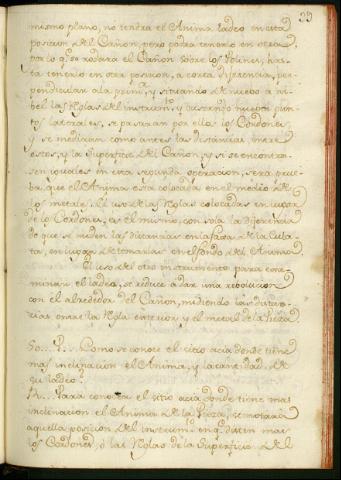 39
mismo plano, no tendra el Anima ladeo en esta
posicion del Cañon, pero podra tenerlo en otra,
por lo q.e se rodara el Cañon sobre los Polines, has-
ta tenerlo en otra posicion, a corta diferencia, per-
pendicular a la prim.a, y situando de nuevo a ni-
bel las Reglas del instrum.to, y buscando nuevos pun-
tos laterales, se pasaran por ellos los Cordones,
y se mediran como antes las distancias entre
estos, y la superficie del Cañon, y si se encontra-
sen iguales en esta segunda operacion, será prue-
ba, que el Anima esta colocada en el medio de
los metales. El uso de las Reglas colocadas en lugar
de los Cordones, es el mismo, con sola la diferencia
de que se miden las distancias en la faxa de la Cula-
ta, en lugar de tomarlas en el fondo del Anima.
El uso del otro instrumento para exa-
minar el ladeo, se reduce a dar una rebolucion
con el alrededor del Cañon, midiendo las distan-
cias entre la Regla exterior y el metal de la Pieza.
50... P... Como se conoce el sitio acia donde tiene
mas inclinacion el Anima, y la cantidad de
su ladeo.
R... Para conocer el sitio acia donde tiene mas
inclinacion el Anima de la Pieza, se notará
aquella posicion del instrum.to en q.e disten mas
los Cordones, ó las Reglas de la superficie del